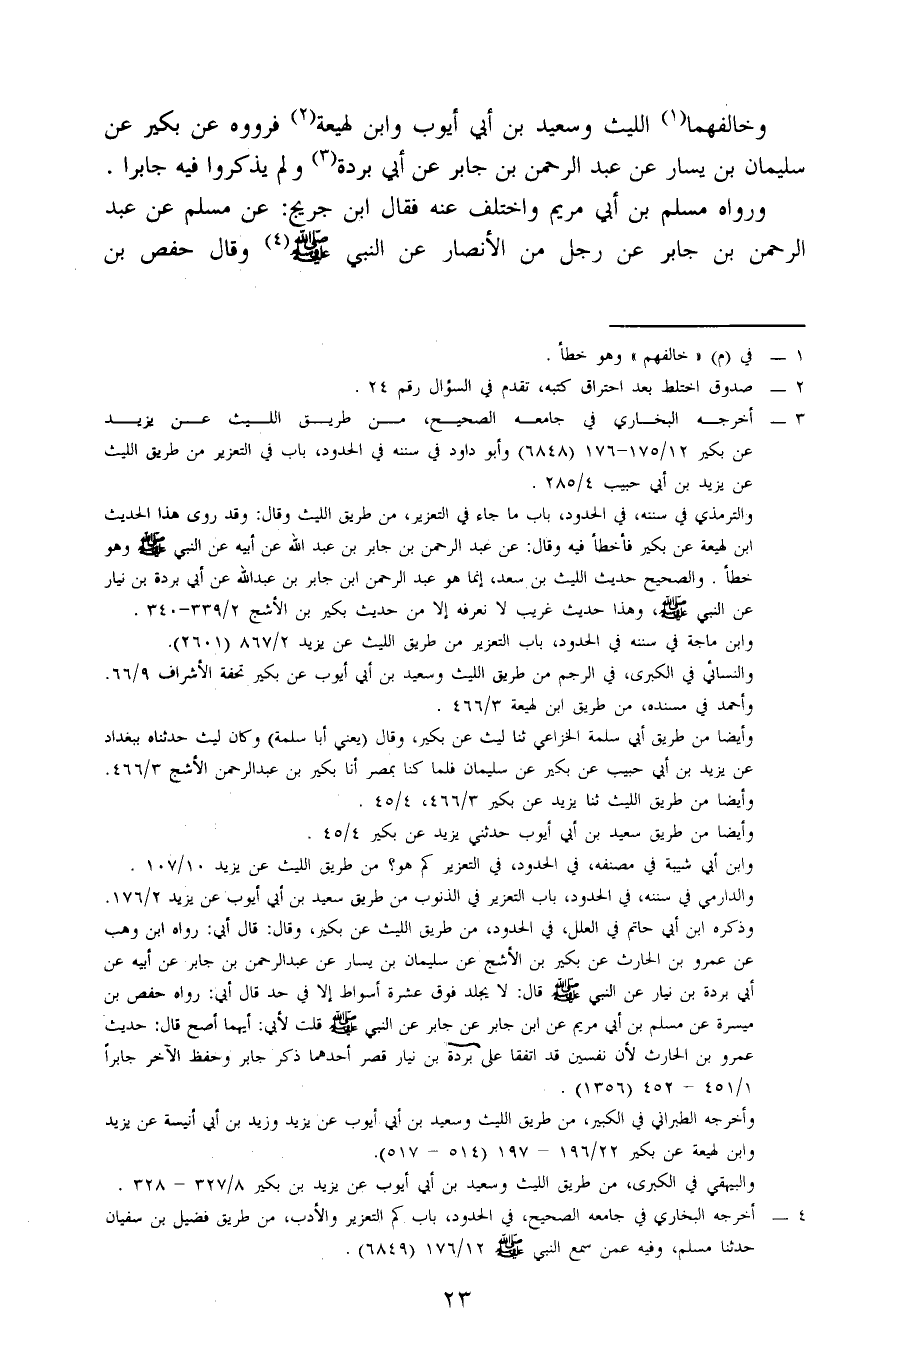 وخالفهما(١) الليث وسعيد بن أبي أيوب وابن لهيعة(٢) فرووه عن بكير عن
سليمان بن يسار عن عبد الرحمن بن جابر عن أبي بردة(٣) ولم يذكروا فيه جابرا .
ورواه مسلم بن أبي مريم واختلف عنه فقال ابن جريج: عن مسلم عن عبد
الرحمن بن جابر عن رجل من الأنصار عن النبي ﷺ(٤) وقال حفص بن
١ ــ في (م) « خالفهم » وهو خطأ .
٢ ــ صدوق اختلط بعد احتراق كتبه، تقدم في السؤال رقم ٢٤ .
٣ ــ أخرجه البخاري في جامعه الصحيح، من طريق الليث عن يزيد
عن بكير ١٢/١٧٥-١٧٦ (٦٨٤٨) وأبو داود في سننه في الحدود، باب في التعزير من طريق الليث
عن يزيد بن أبي حبيب ٤/٢٨٥ .
والترمذي في سننه، في الحدود، باب ما جاء في التعزير، من طريق الليث وقال: وقد روى هذا الحديث
ابن لهيعة عن بكير فأخطأ فيه وقال: عن عبد الرحمن بن جابر بن عبد الله عن أبيه عن النبي ﷺ وهو
خطأ . والصحيح حديث الليث بن سعد، إنما هو عبد الرحمن ابن جابر بن عبدالله عن أبي بردة بن نيار
عن النبي ﷺ، وهذا حديث غريب لا نعرفه إلا من حديث بكير بن الأشج ٢/٣٣٩-٣٤٠ .
وابن ماجة في سننه في الحدود، باب التعزير من طريق الليث عن يزيد ٢/٨٦٧ (٢٦٠١).
والنسائي في الكبرى، في الرجم من طريق الليث وسعيد بن أبي أيوب عن بكير تحفة الأشراف ٩/٦٦.
وأحمد في مسنده، من طريق ابن لهيعة ٣/٤٦٦ .
وأيضا من طريق أبي سلمة الخزاعي ثنا ليث عن بكير، وقال (يعني أبا سلمة) وكان ليث حدثناه ببغداد
عن يزيد بن أبي حبيب عن بكير عن سليمان فلما كنا بمصر أنا بكير بن عبدالرحمن الأشج ٣/٤٦٦.
وأيضا من طريق الليث ثنا يزيد عن بكير ٣/٤٦٦، ٤/٤٥ .
وأيضا من طريق سعيد بن أبي أيوب حدثني يزيد عن بكير ٤/٤٥ .
وابن أبي شيبة في مصنفه، في الحدود، في التعزير كم هو؟ من طريق الليث عن يزيد ١٠/١٠٧ .
والدارمي في سننه، في الحدود، باب التعزير في الذنوب من طريق سعيد بن أبي أيوب عن يزيد ٢/١٧٦.
وذكره ابن أبي حاتم في العلل، في الحدود، من طريق الليث عن بكير، وقال: قال أبي: رواه ابن وهب
عن عمرو بن الحارث عن بكير بن الأشج عن سليمان بن يسار عن عبدالرحمن بن جابر عن أبيه عن
أبي بردة بن نيار عن النبي ﷺ قال: لا يجلد فوق عشرة أسواط إلا في حد قال أبي: رواه حفص بن
ميسرة عن مسلم بن أبي مريم عن ابن جابر عن جابر عن النبي ﷺ قلت لأبي: أيهما أصح قال: حديث
عمرو بن الحارث لأن نفسين قد اتفقا على بردة بن نيار قصر أحدهما ذكر جابر وحفظ الآخر جابراً
١/٤٥١ – ٤٥٢ (١٣٥٦) .
وأخرجه الطبراني في الكبير، من طريق الليث وسعيد بن أبي أيوب عن يزيد وزيد بن أبي أنيسة عن يزيد
وابن لهيعة عن بكير ٢٢/١٩٦ – ١٩٧ (٥١٤ – ٥١٧).
والبيهقي في الكبرى، من طريق الليث وسعيد بن أبي أيوب عن يزيد بن بكير ٨/٣٢٧ – ٣٢٨ .
٤ ــ أخرجه البخاري في جامعه الصحيح، في الحدود، باب كم التعزير والأدب، من طريق فضيل بن سفيان
حدثنا مسلم، وفيه عمن سمع النبي ﷺ ١٢/١٧٦ (٦٨٤٩) .
٢٣